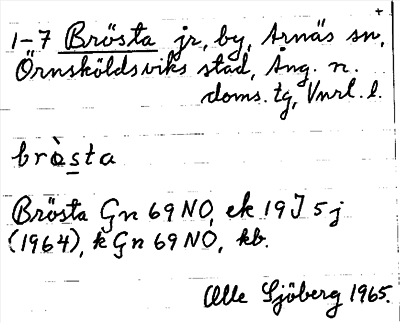 1-7 Brösta jr, by, Arnäs sn,
Örnsköldsviks stad, Ång. n.
doms. tg, Vnrl. l.
bròsta
Brösta Gn 69 NO, ek 19J 5j
(1964), k Gn 69 NO, kb.
Olle Sjöberg 1965.